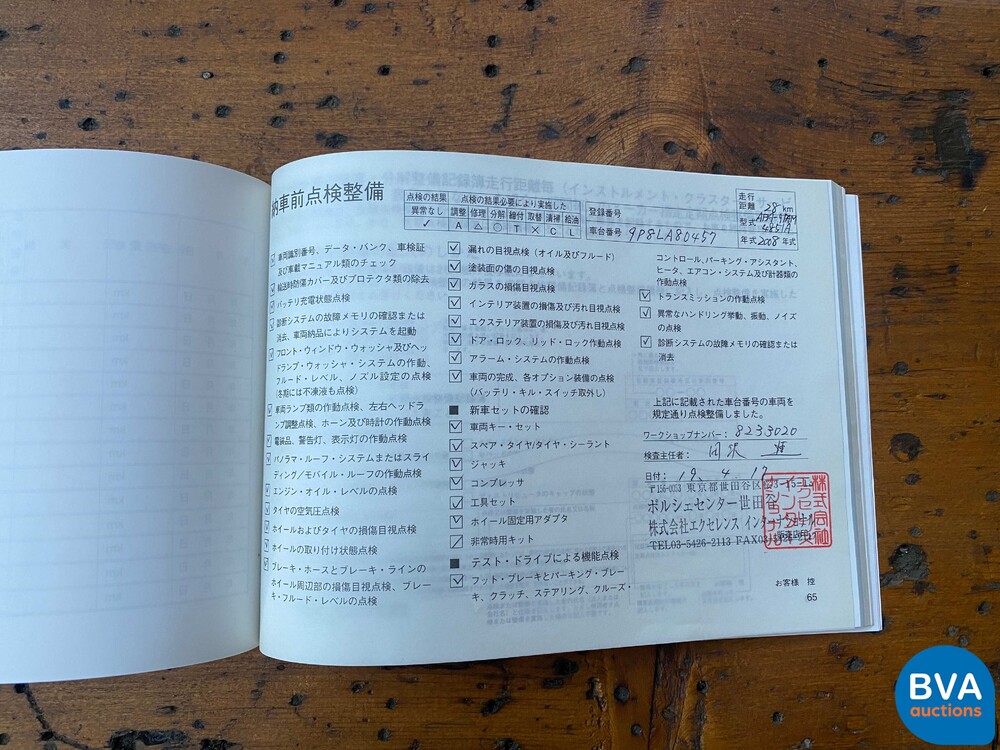 納車前点検整備
点検の結果 点検の結果必要により実施した
異常なし 調整 修理 分解 締付 取替 清掃 給油
✓ A △ ○ T × C L
登録番号
車台番号 9P8LA80457
走行距離 28 km
型式 4851A
年式 2008 年式
車両識別番号、データ・バンク、車検証
及び車載マニュアル類のチェック
輸送時防傷カバー及びプロテクタ類の除去
バッテリ充電状態点検
診断システムの故障メモリの確認または
消去、車両納品によりシステムを起動
フロント・ウィンドウ・ウォッシャ及びヘッ
ドランプ・ウォッシャ・システムの作動、
フルード・レベル、ノズル設定の点検
(冬期には不凍液も点検)
車両ランプ類の作動点検、左右ヘッドラ
ンプ調整点検、ホーン及び時計の作動点検
電装品、警告灯、表示灯の作動点検
パノラマ・ルーフ・システムまたはスライ
ディング/モバイル・ルーフの作動点検
エンジン・オイル・レベルの点検
タイヤの空気圧点検
ホイールおよびタイヤの損傷目視点検
ホイールの取り付け状態点検
ブレーキ・ホースとブレーキ・ラインの
ホイール周辺部の損傷目視点検、ブレー
キ・フルード・レベルの点検
漏れの目視点検(オイル及びフルード)
塗装面の傷の目視点検
ガラスの損傷目視点検
インテリア装置の損傷及び汚れ目視点検
エクステリア装置の損傷及び汚れ目視点検
ドア・ロック、リッド・ロック作動点検
アラーム・システムの作動点検
車両の完成、各オプション装備の点検
(バッテリ・キル・スイッチ取外し)
■ 新車セットの確認
車両キー・セット
スペア・タイヤ/タイヤ・シーラント
ジャッキ
コンプレッサ
工具セット
ホイール固定用アダプタ
非常時用キット
■ テスト・ドライブによる機能点検
フット・ブレーキとパーキング・ブレー
キ、クラッチ、ステアリング、クルーズ・
コントロール、パーキング・アシスタント、
ヒータ、エアコン・システム及び計器類の
作動点検
トランスミッションの作動点検
異常なハンドリング挙動、振動、ノイズ
の点検
診断システムの故障メモリの確認または
消去
上記に記載された車台番号の車両を
規定通り点検整備しました。
ワークショップナンバー: 8233020
検査主任者:
日付: 19 4 17
〒156-0053 東京都世田谷区
ポルシェセンター世田谷
株式会社エクセレンス インターナショナル
TEL03-5426-2113 FAX03
お客様 控
65
BVA
auctions